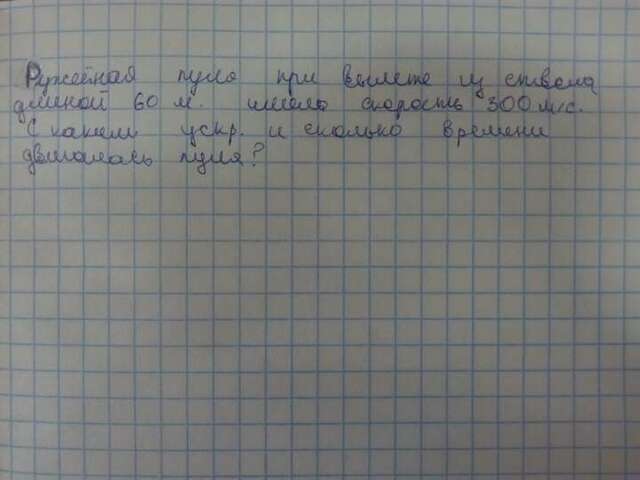 Ружейная пуля при вылете из ствола
длиной 60 м. имела скорость 300 м/с.
С каким ускр. и сколько времени
двигалась пуля?